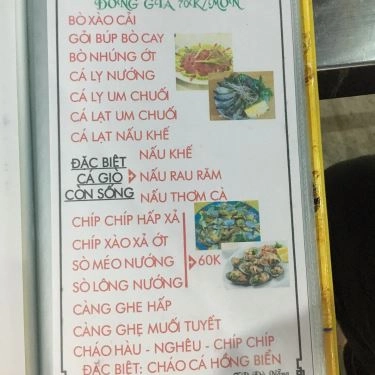 ĐỒNG GIÁ 70K/MÓN
BÒ XÀO CẢI
GỎI BÚP BÒ CAY
BÒ NHÚNG ỚT
CÁ LY NƯỚNG
CÁ LY UM CHUỐI
CÁ LẠT UM CHUỐI
CÁ LẠT NẤU KHẾ
ĐẶC BIỆT
CÁ GIÒ
CÒN SỐNG
NẤU KHẾ
NẤU RAU RĂM
NẤU THƠM CÀ
CHÍP CHÍP HẤP XẢ
CHÍP XÀO XẢ ỚT
SÒ MÉO NƯỚNG
SÒ LÔNG NƯỚNG
60K
CÀNG GHE HẤP
CÀNG GHẸ MUỐI TUYẾT
CHÁO HÀU - NGHÊU - CHÍP CHÍP
ĐẶC BIỆT: CHÁO CÁ HỒNG BIỂN